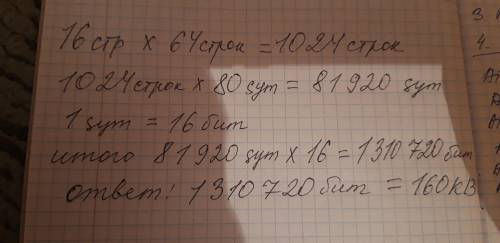 16 стр x 64 строк = 1024 строк
3.
1024 строк x 80 sym = 81920 sym
4.
1 sym = 16 бит
итого 81920 sym x 16 = 1310720 бит
ответ! 1310720 бит = 160кв